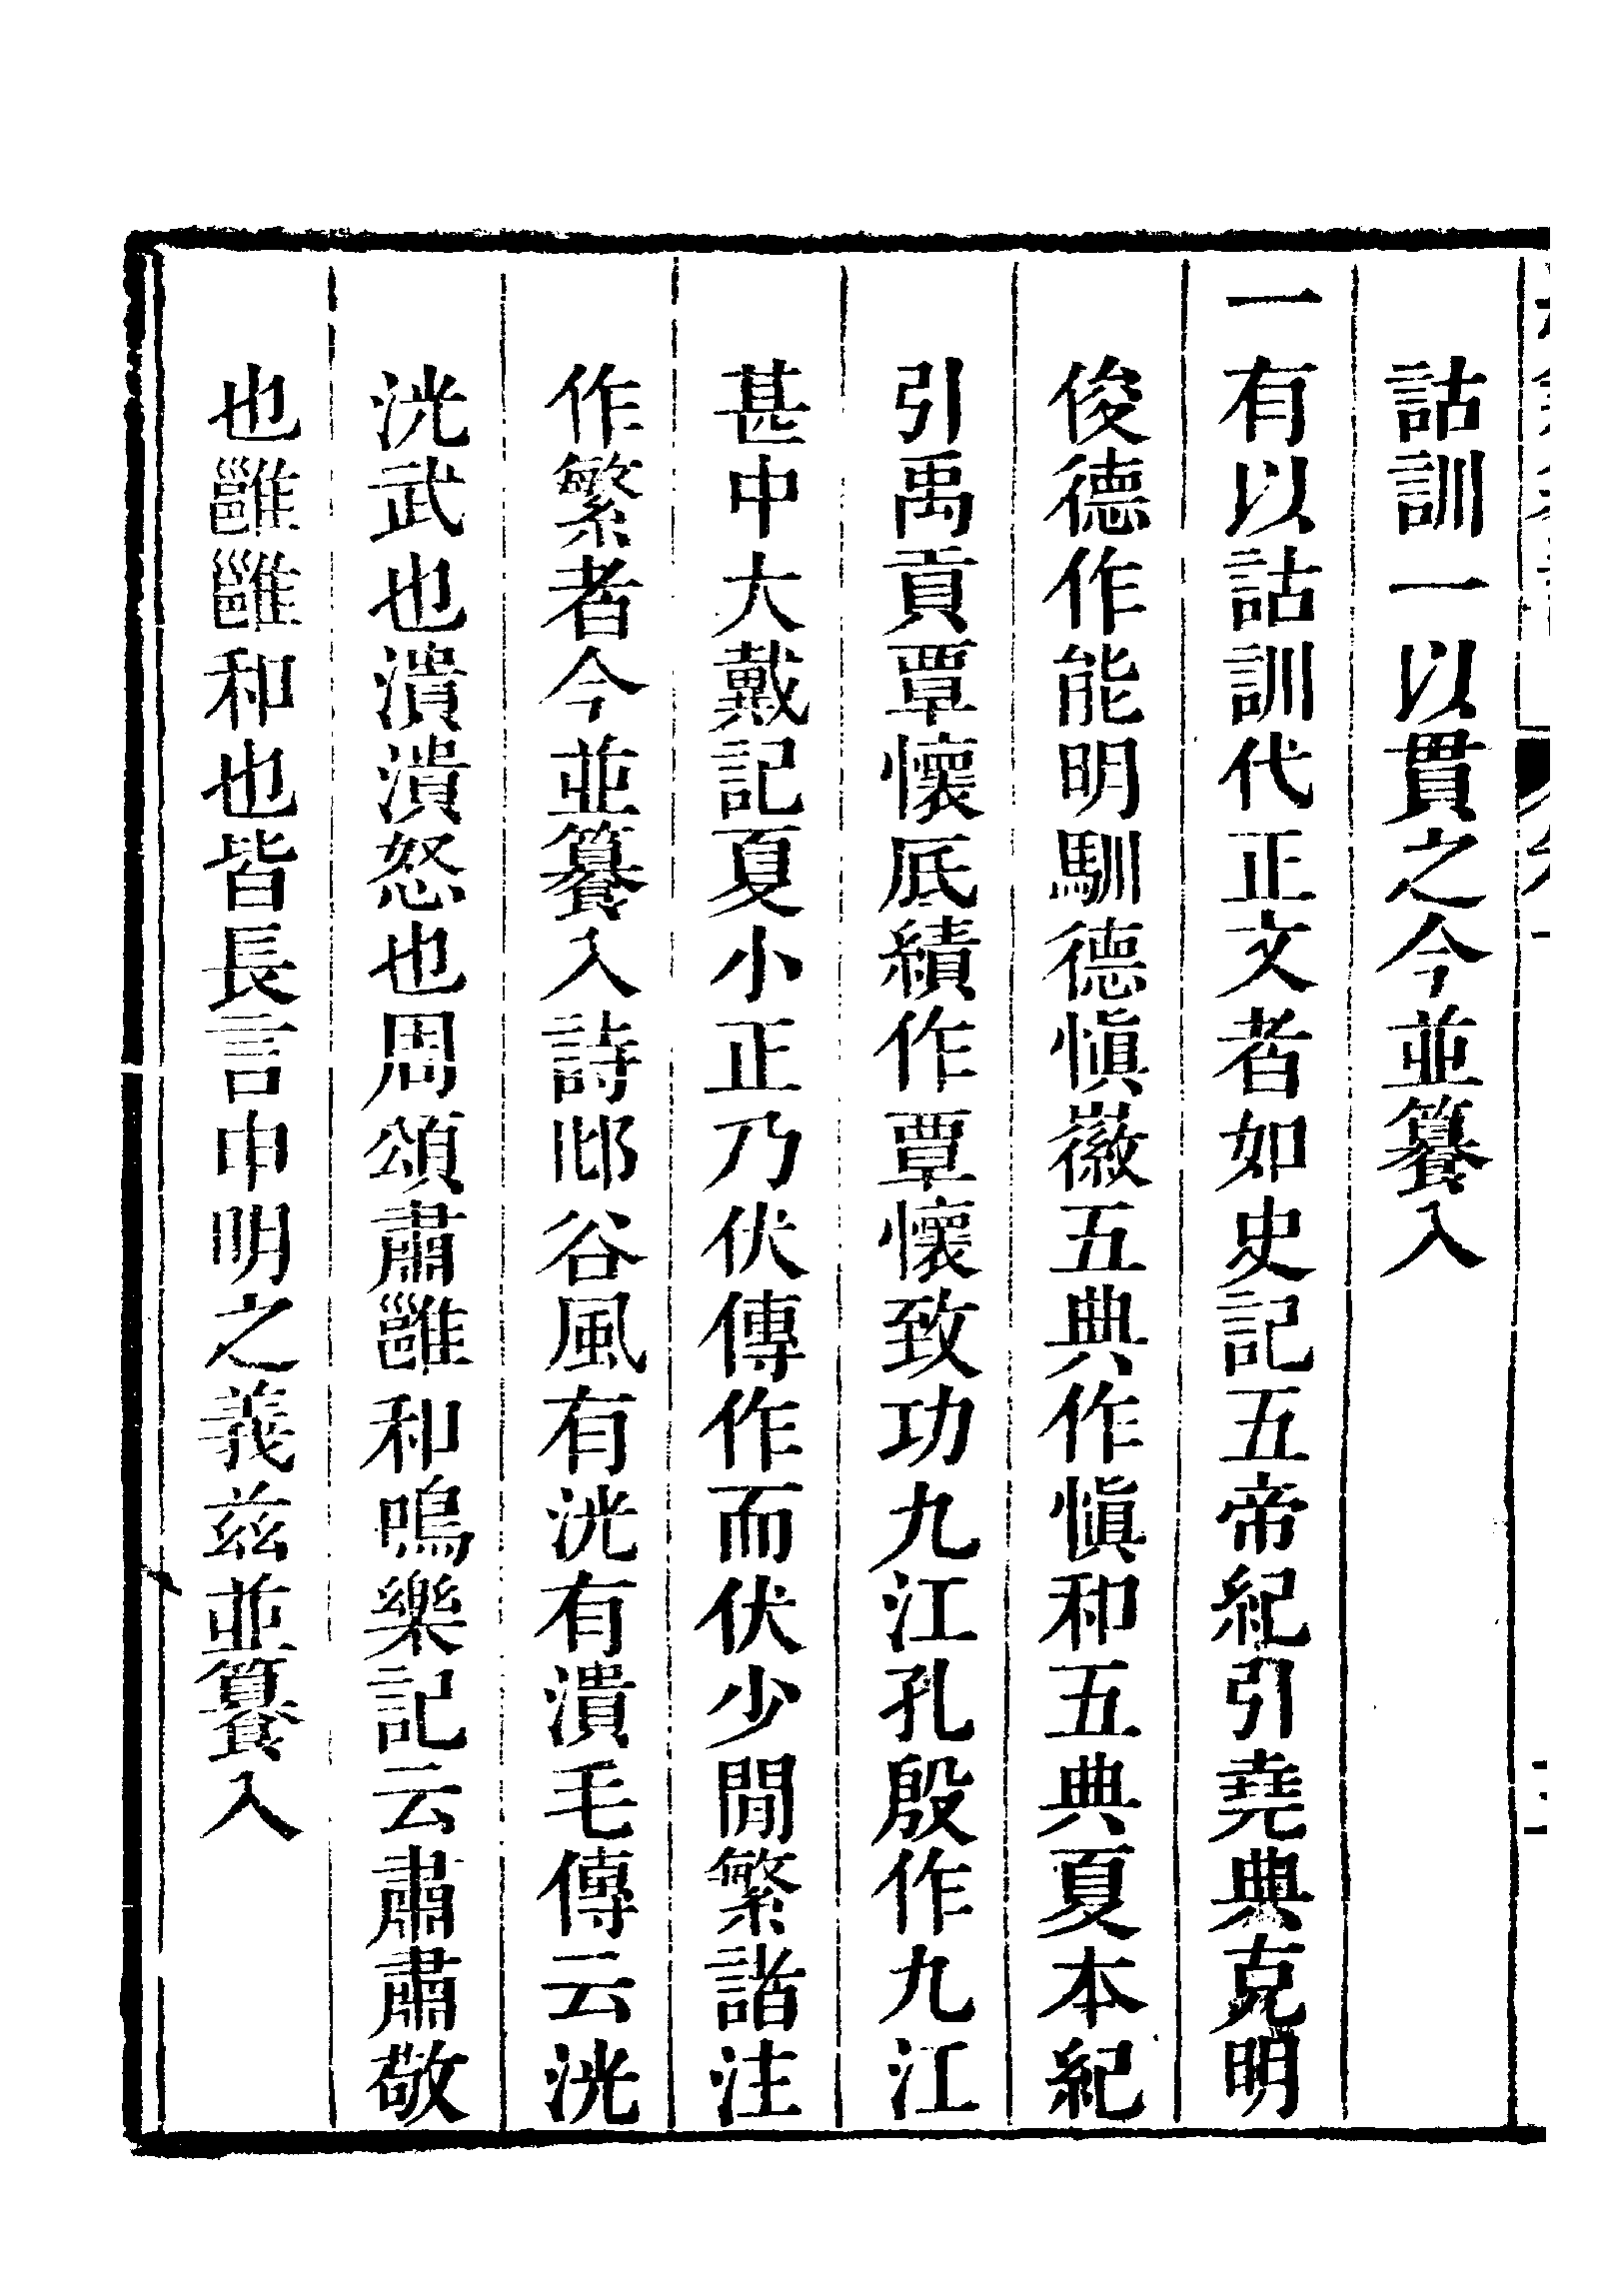 詁訓一以貫之今並纂入
一有以詁訓代正文者如史記五帝紀引堯典克明
俊德作能明馴德愼徽五典作愼和五典夏本紀
引禹貢覃懷厎績作覃懷致功九江孔殷作九江
甚中大戴記夏小正乃伏傳作而伏少閒繁諸注
作繁者今並纂入詩邶谷風有洸有潰毛傳云洸
洸武也潰潰怒也周頌肅雝和鳴樂記云肅肅敬
也雝雝和也皆長言申明之義茲並纂入